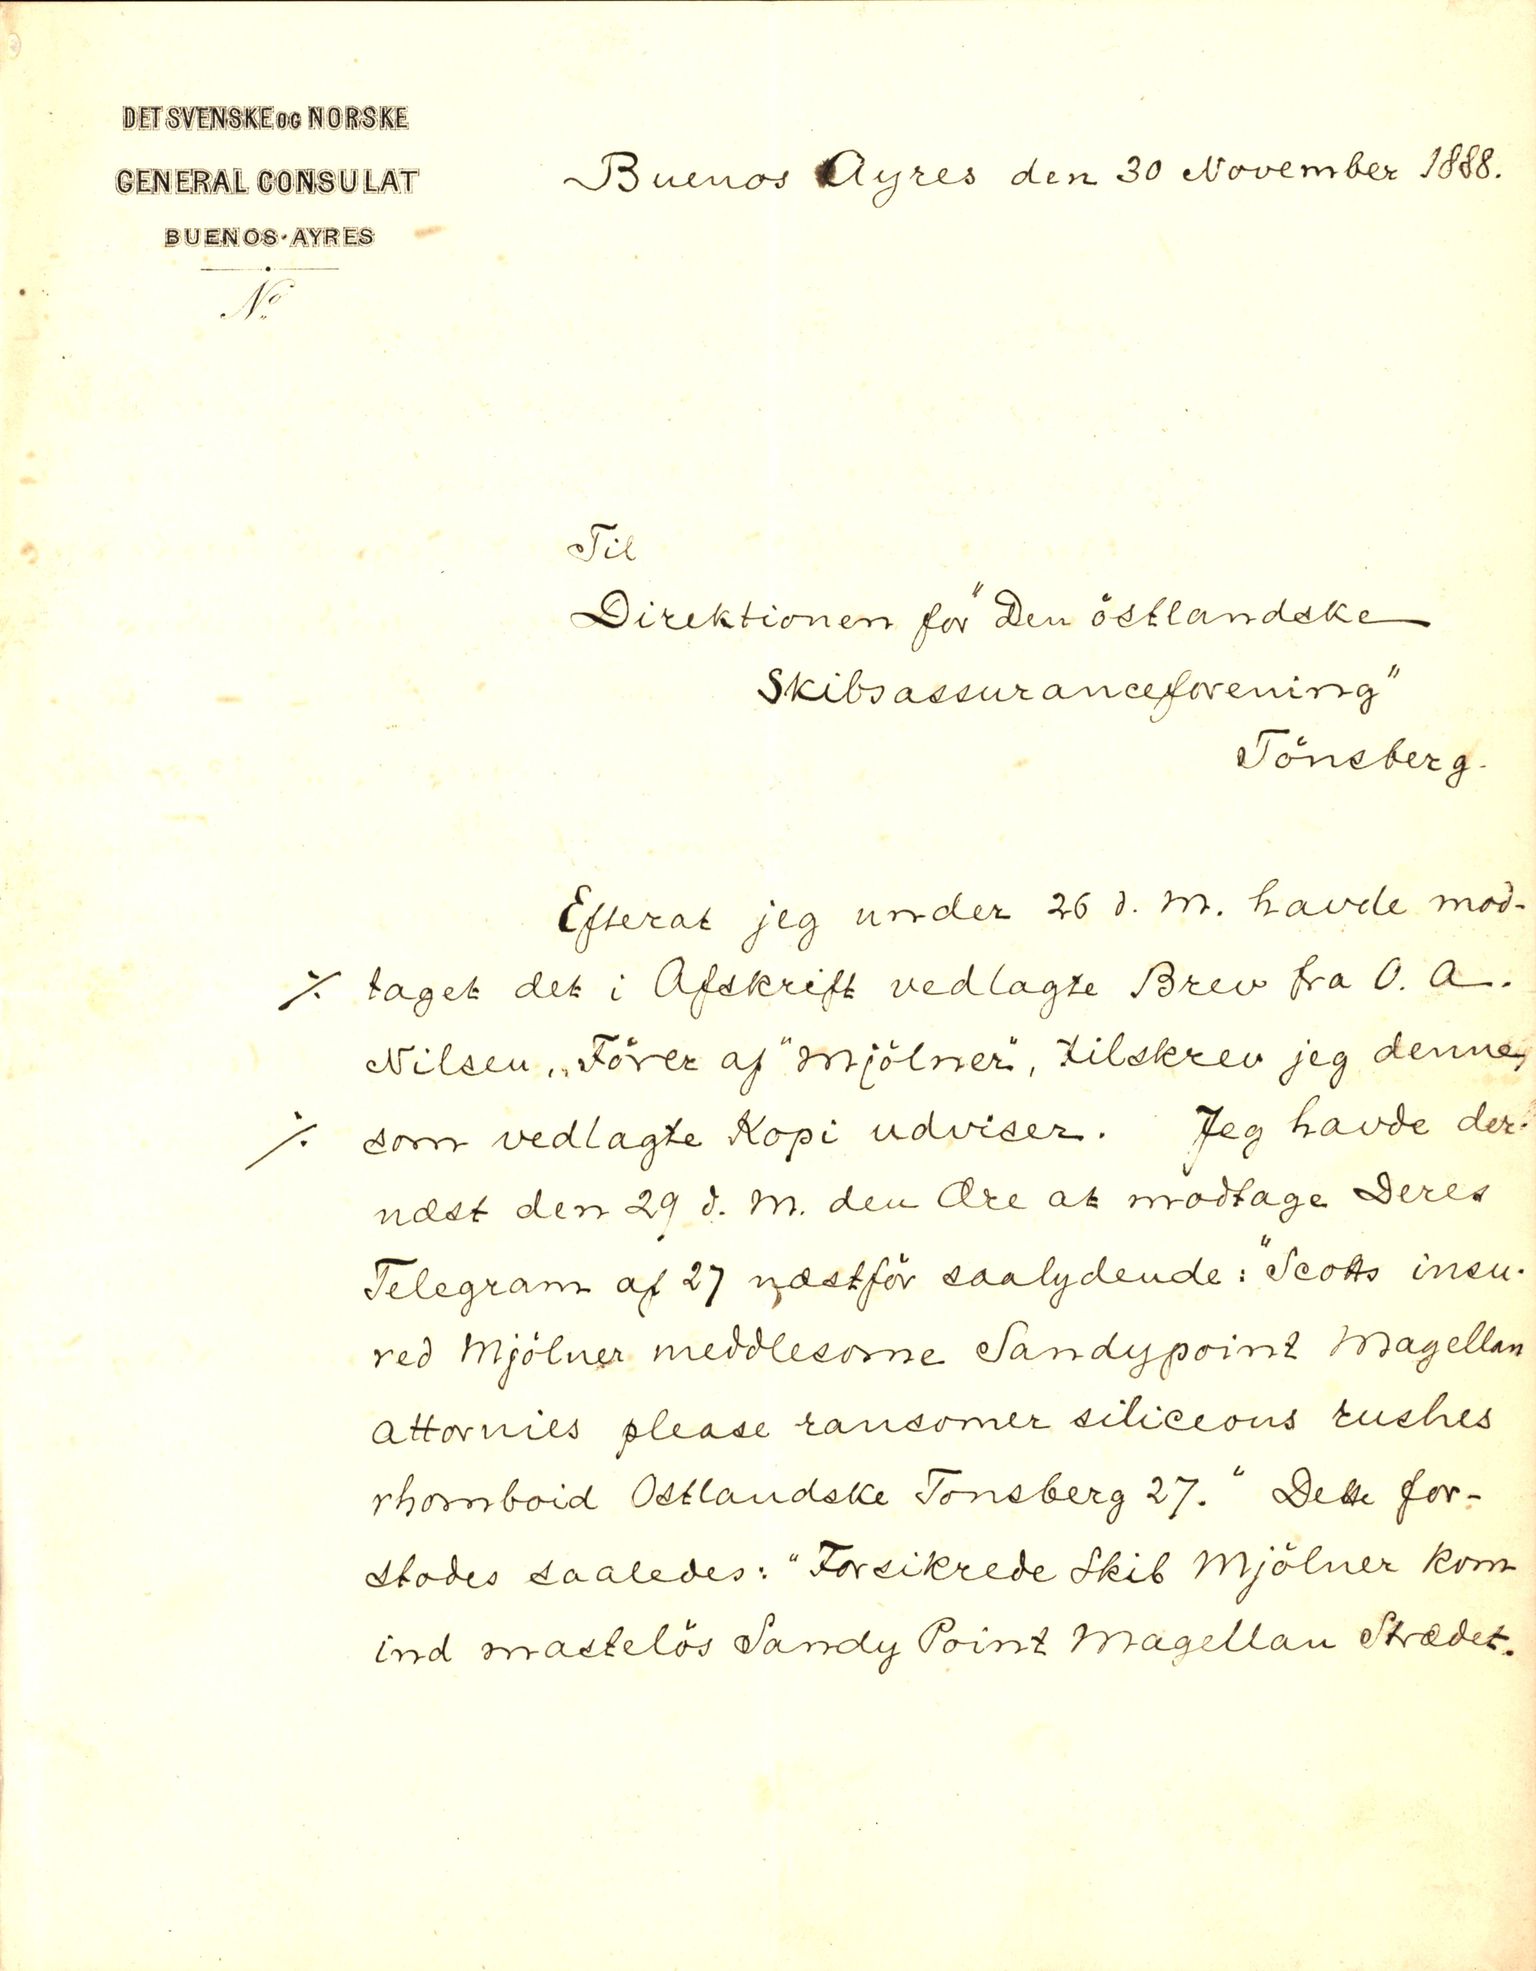 DET SVENSKE OG NORSKE
GENERAL CONSULAT
BUENOS-AYRES
No
Buenos Ayres den 30 November 1888.
Til
Direktionen for "Den östlandske
Skibsassuranceforening"
Tönsberg.
Efterat jeg under 26 d. M. havde mod-
·/. taget det i Afskrift vedlagte Brev fra O. A.
Nilsen, Förer af "Mjölner", tilskrev jeg denne,
·/. som vedlagte Kopi udviser. Jeg havde der-
næst den 29 d. M. den Ære at modtage Deres
Telegram af 27 næstför saalydende: "Scotts insu-
red Mjölner meddlesome Sandypoint Magellan
attornies please ransomer siliceous rushes
rhomboid Ostlandske Tonsberg 27." Dette for-
stodes saaledes: "Forsikrede Skib Mjölner kom
ind mastelös Sandy Point Magellan Strædet.